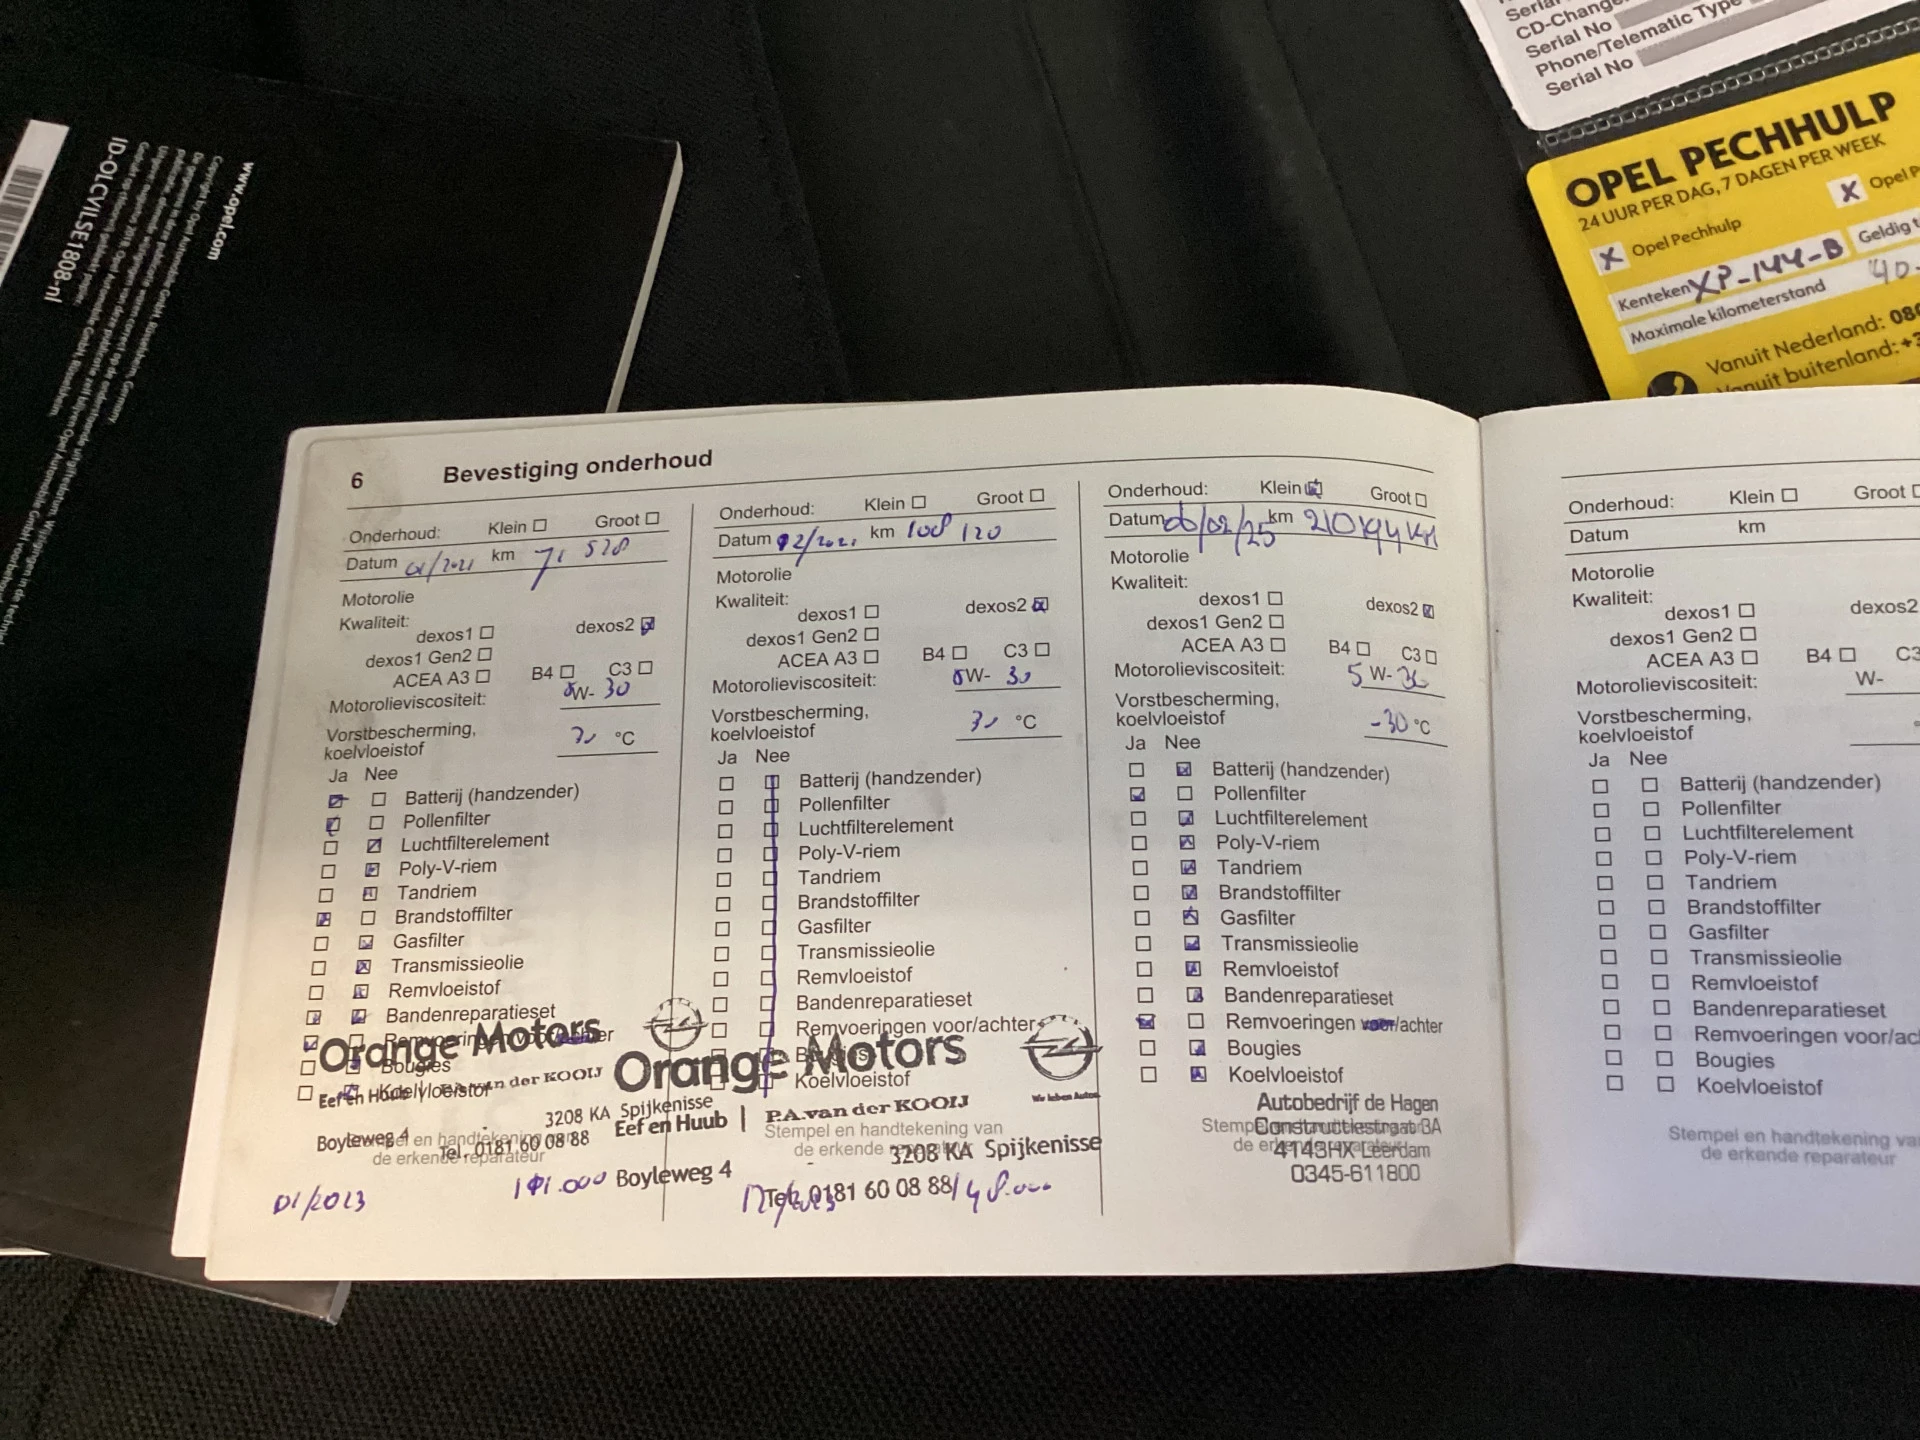 www.opel.com
ID-OLCVILSE1808-nl
CD-Change
Serial No
Phone/Telematic Type
Serial No
OPEL PECHHULP
24 UUR PER DAG, 7 DAGEN PER WEEK
X Opel Pechhulp X Opel P
Kenteken XP-144-B Geldig t
Maximale kilometerstand 40-
Vanuit Nederland: 08
Vanuit buitenland: +3
6 Bevestiging onderhoud
Onderhoud: Klein Groot
Datum 01/2021 km 71 528
Motorolie
Kwaliteit:
dexos1 dexos2
dexos1 Gen2
ACEA A3 B4 C3
Motorolieviscositeit: W- 30
Vorstbescherming,
koelvloeistof °C
Ja Nee
Batterij (handzender)
Pollenfilter
Luchtfilterelement
Poly-V-riem
Tandriem
Brandstoffilter
Gasfilter
Transmissieolie
Remvloeistof
Bandenreparatieset
Remvoeringen voor/achter
Bougies
Koelvloeistof
Orange Motors
Eef en Huub | P.A. van der KOOIJ
Boyleweg 4 3208 KA Spijkenisse
Tel. 0181 60 08 88
Stempel en handtekening van
de erkende reparateur
01/2023 191.000
Onderhoud: Klein Groot
Datum 12/2021 km 108 120
Motorolie
Kwaliteit:
dexos1 dexos2
dexos1 Gen2
ACEA A3 B4 C3
Motorolieviscositeit: W- 30
Vorstbescherming,
koelvloeistof °C
Ja Nee
Batterij (handzender)
Pollenfilter
Luchtfilterelement
Poly-V-riem
Tandriem
Brandstoffilter
Gasfilter
Transmissieolie
Remvloeistof
Bandenreparatieset
Remvoeringen voor/achter
Bougies
Koelvloeistof
Orange Motors
Wir leben Autos.
Eef en Huub | P.A. van der KOOIJ
Stempel en handtekening van
de erkende reparateur
Boyleweg 4 3208 KA Spijkenisse
Tel. 0181 60 08 88
148.000
Onderhoud: Klein Groot
Datum 06/02/25 km 210194 km
Motorolie
Kwaliteit:
dexos1 dexos2
dexos1 Gen2
ACEA A3 B4 C3
Motorolieviscositeit: 5 W-30
Vorstbescherming,
koelvloeistof -30 °C
Ja Nee
Batterij (handzender)
Pollenfilter
Luchtfilterelement
Poly-V-riem
Tandriem
Brandstoffilter
Gasfilter
Transmissieolie
Remvloeistof
Bandenreparatieset
Remvoeringen voor/achter
Bougies
Koelvloeistof
Autobedrijf de Hagen
Constructiestraat 3A
4143HX Leerdam
0345-611800
Stempel en handtekening van
de erkende reparateur
Onderhoud: Klein Groot
Datum km
Motorolie
Kwaliteit:
dexos1 dexos2
dexos1 Gen2
ACEA A3 B4 C3
Motorolieviscositeit: W-
Vorstbescherming,
koelvloeistof
Ja Nee
Batterij (handzender)
Pollenfilter
Luchtfilterelement
Poly-V-riem
Tandriem
Brandstoffilter
Gasfilter
Transmissieolie
Remvloeistof
Bandenreparatieset
Remvoeringen voor/ac
Bougies
Koelvloeistof
Stempel en handtekening va
de erkende reparateur